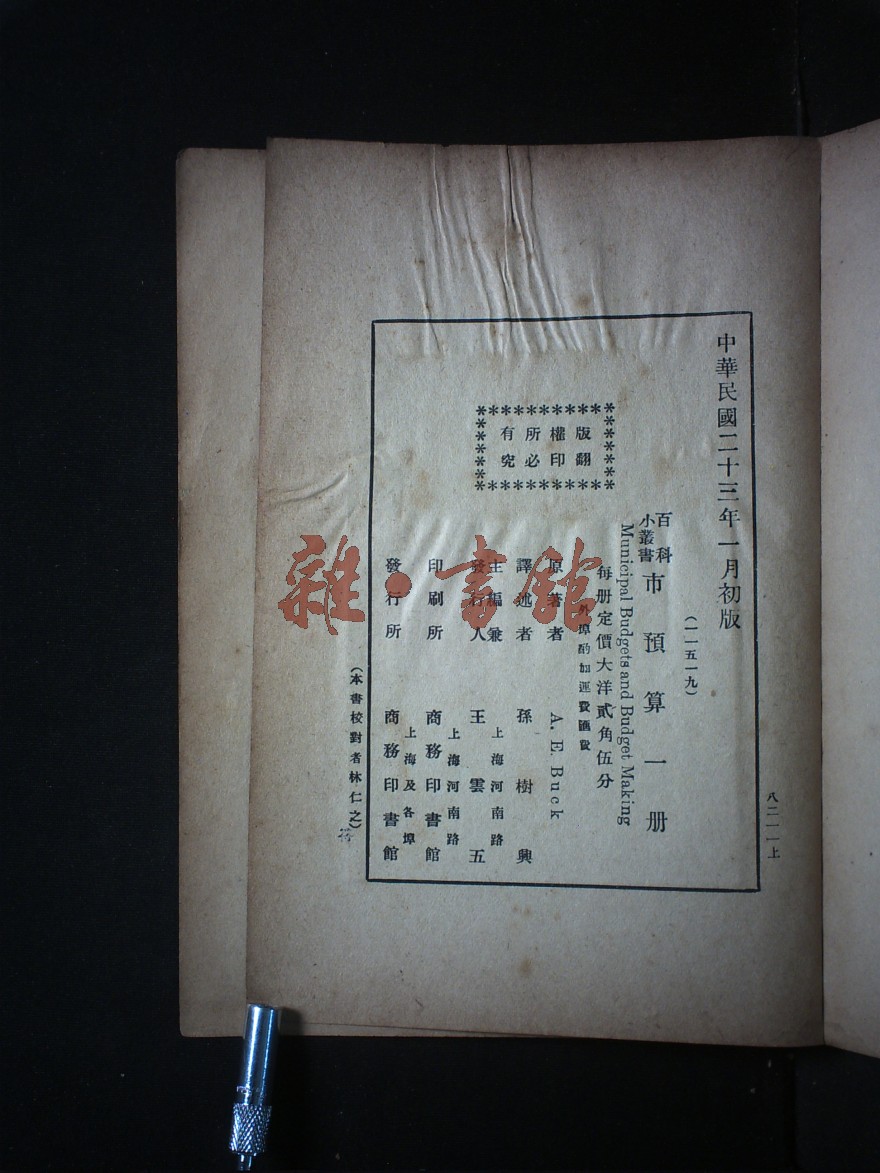 中華民國二十三年一月初版
(一一五一九)
百科小叢書
市預算一册
Municipal Budgets and Budget Making
每册定價大洋貳角伍分
外埠酌加運費匯費
版權所有
翻印必究
原著者 A. E. Buck
譯述者 孫樹興
主編兼發行人 上海河南路 王雲五
印刷所 上海河南路 商務印書館
發行所 上海及各埠 商務印書館
(本書校對者林仁之)
八二一一上
雜·書館